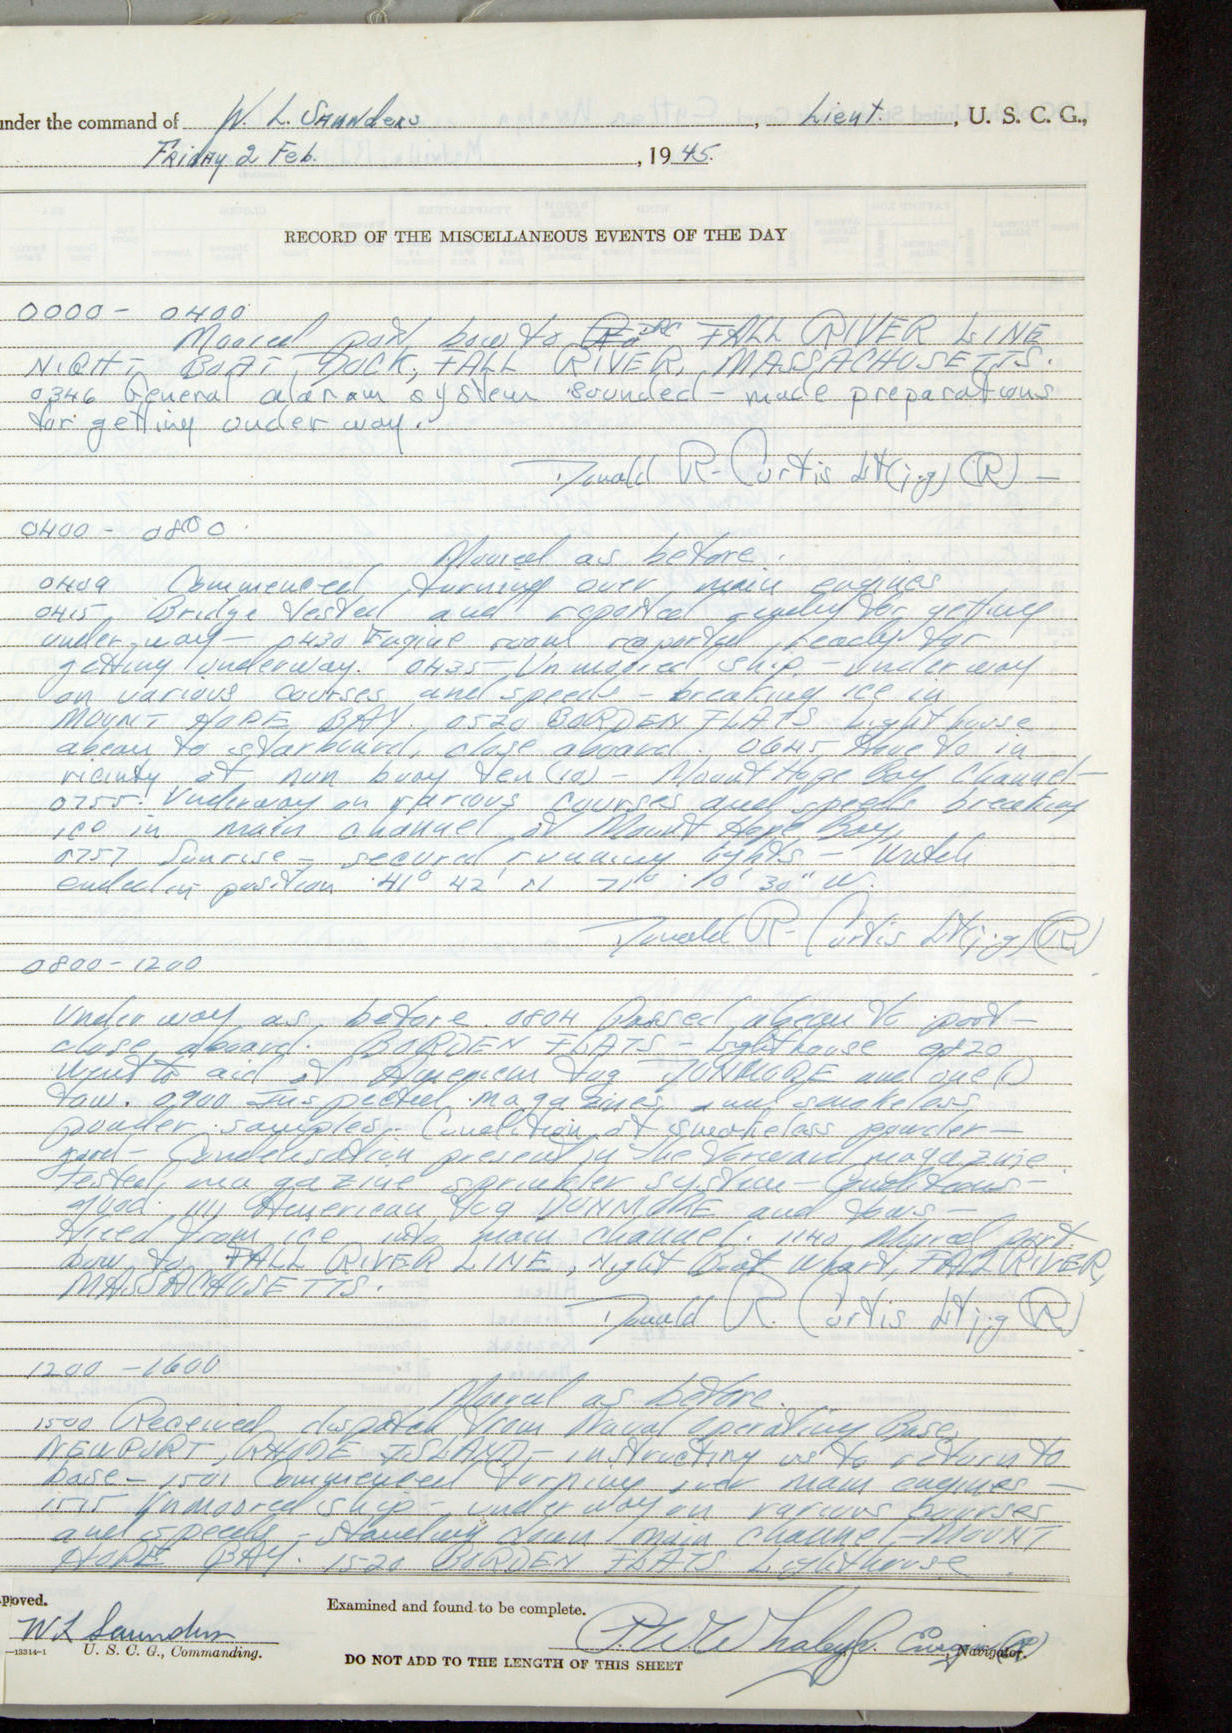 under the command of W. L. Saunders, Lieut., U. S. C. G.,
Friday 2 Feb., 1945.
RECORD OF THE MISCELLANEOUS EVENTS OF THE DAY
0000 - 0400
Moored port bow to DRC FALL RIVER LINE
NIGHT BOAT DOCK, FALL RIVER, MASSACHUSETTS.
0346 General alaram system sounded - made preparations
for getting under way.
Donald R. Curtis Lt(j.g) (R) -
0400 - 0800
Moored as before.
0409 Commenced turning over main engines
0415 Bridge tested and reported ready for getting
under way - 0430 Engine room reported ready for
getting underway. 0435 - Unmoored ship - under way
on various courses and speeds - breaking ice in
MOUNT HOPE BAY. 0520 BORDEN FLATS Light house
abeam to starboard, close aboard. 0645 Hove to in
vicinity of nun buoy ten (10) - Mount Hope Bay Channel -
0755. Underway on various courses and speeds breaking
ice in main channel of Mount Hope Bay.
0757 Sunrise - secured running lights - Watch
ended in position 41° 42' N 71° 10' 30" W.
Donald R. Curtis Lt(j.g) (R)
0800 - 1200
Under way as before. 0804 Passed abeam to port -
close aboard. BORDEN FLATS - Lighthouse 0820
Went to aid of American tug DUNMORE and one (1)
tow. 0900 Inspected magazines and smokeless
powder samples. Condition of smokeless powder -
good - Condensation present in the forward magazine.
Tested magazine sprinkler system - Conditions -
good. American tug DUNMORE and tows -
freed from ice into main channel. 1140 Moored port
bow to FALL RIVER LINE, Night Boat Wharf, FALL RIVER,
MASSACHUSETTS.
Donald R. Curtis Lt j.g (R)
1200 - 1600
Moored as before.
1500 Received dispatch from Naval Operating Base,
NEWPORT, RHODE ISLAND - instructing us to return to
base - 1501 Commenced turning over main engines -
1515 Unmoored ship - under way on various courses
and speeds - standing down main channel - MOUNT
HOPE BAY. 1520 BORDEN FLATS Lighthouse.
pproved.
Examined and found to be complete.
W L Saunders
U. S. C. G., Commanding.
Navigator.
—13314-1
DO NOT ADD TO THE LENGTH OF THIS SHEET